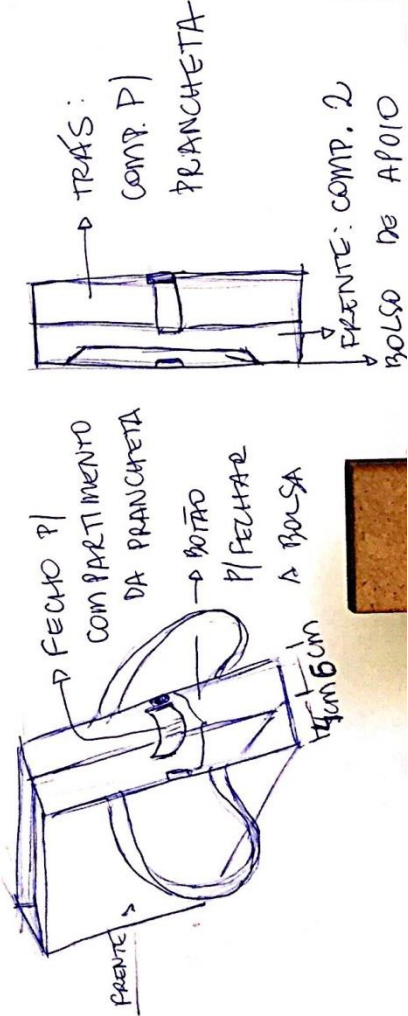 FRENTE >
→ FECHO P/
COMPARTIMENTO
DA PRANCHETA
→ BOTÃO
P/ FECHAR
A BOLSA
6 cm
→ TRÁS:
COMP. P/
PRANCHETA
FRENTE: COMP. 2
BOLSO DE APOIO